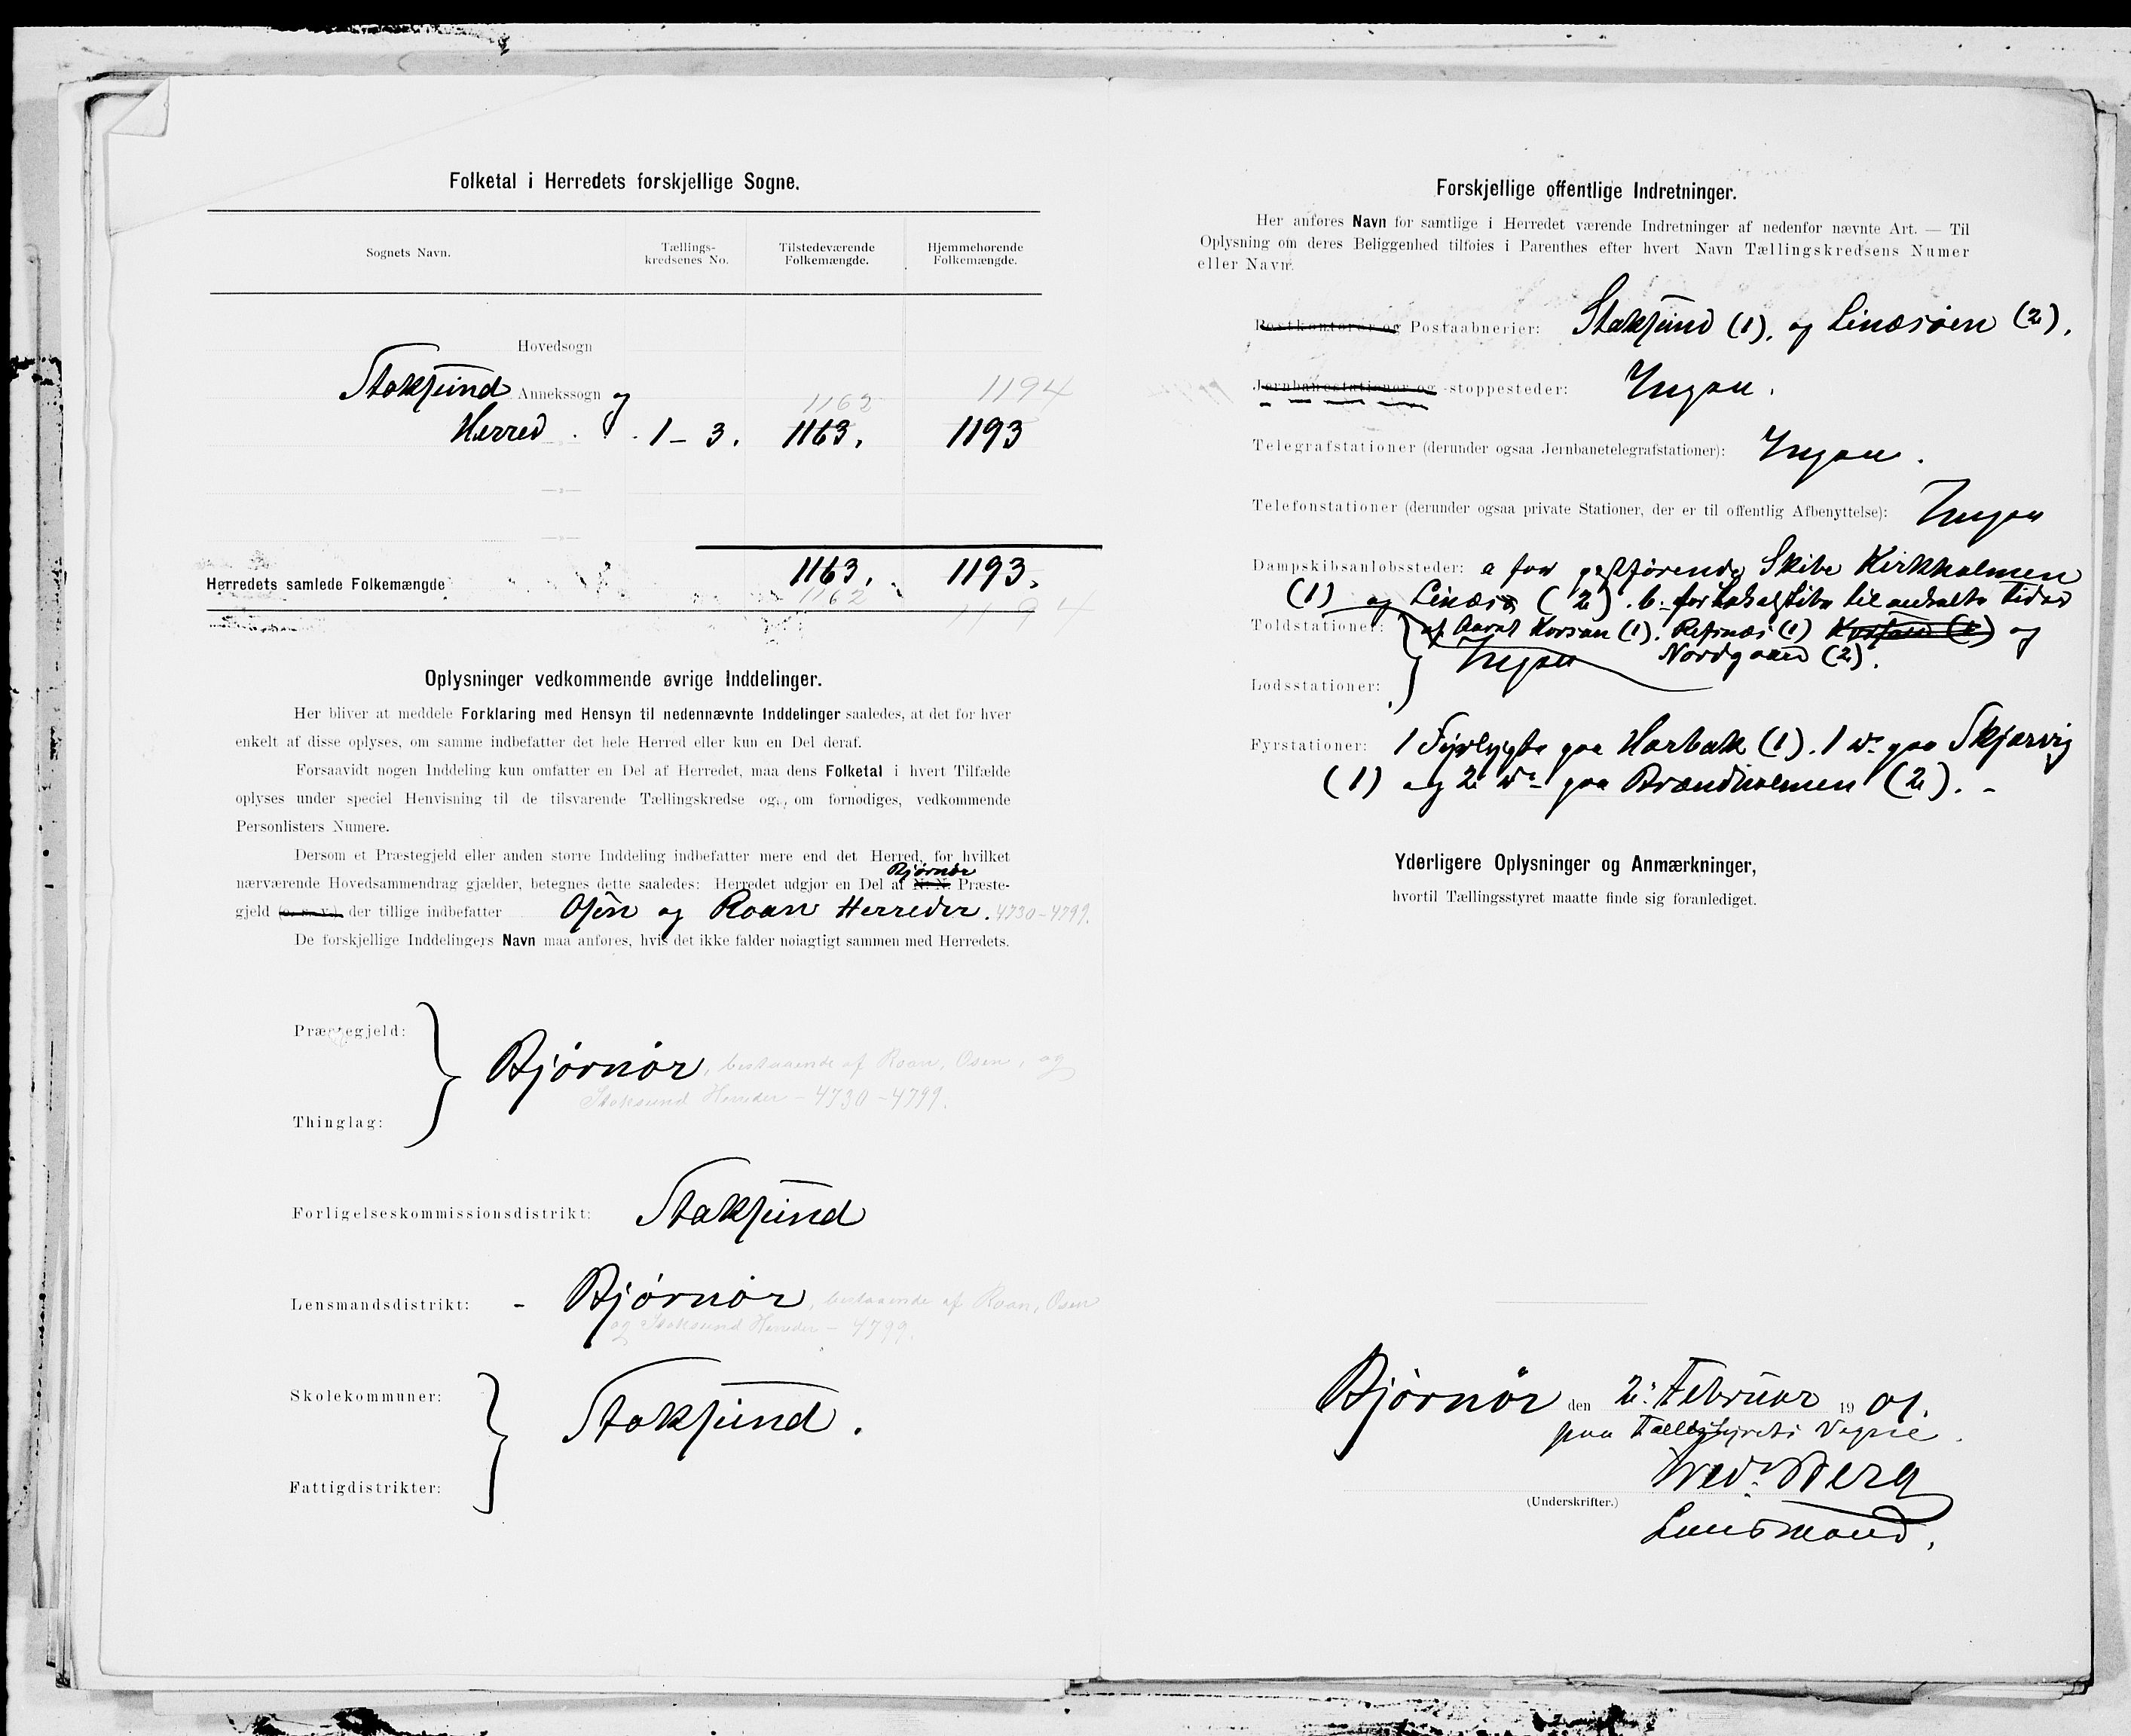 Folketal i Herredets forskjellige Sogne.
Sognets Navn.
Tællings-
kredsenes No.
Tilstedeværende
Folkemængde.
Hjemmehørende
Folkemængde.
Hovedsogn
Stoksund Annekssogn og 1162 1194
Herred . . 1-3. 1163. 1193
—»—
—»—
Herredets samlede Folkemængde 1163. 1193.
1162 1194
Oplysninger vedkommende øvrige Inddelinger.
Her bliver at meddele Forklaring med Hensyn til nedennævnte Inddelinger saaledes, at det for hver
enkelt af disse oplyses, om samme indbefatter det hele Herred eller kun en Del deraf.
Forsaavidt nogen Inddeling kun omfatter en Del af Herredet, maa dens Folketal i hvert Tilfælde
oplyses under speciel Henvisning til de tilsvarende Tællingskredse og, om fornødiges, vedkommende
Personlisters Numere.
Dersom et Præstegjeld eller anden større Inddeling indbefatter mere end det Herred, for hvilket
Bjørnør
nærværende Hovedsammendrag gjælder, betegnes dette saaledes: Herredet udgjør en Del af N. N. Præste-
gjeld (o. s. v.), der tillige indbefatter Osen og Roan Herreder. 4730-4799.
De forskjellige Inddelingers Navn maa anføres, hvis det ikke falder nøiagtigt sammen med Herredets.
Præstegjeld:
Bjørnør, bestaaende af Roan, Osen, og
Stoksund Herreder - 4730-4799.
Thinglag:
Forligelseskommissionsdistrikt: Stoksund
Lensmandsdistrikt: - Bjørnør, bestaaende af Roan, Osen
og Stoksund Herreder - 4799.
Skolekommuner:
Stoksund.
Fattigdistrikter:
Forskjellige offentlige Indretninger.
Her anføres Navn for samtlige i Herredet værende Indretninger af nedenfor nævnte Art. — Til
Oplysning om deres Beliggenhed tilføies i Parenthes efter hvert Navn Tællingskredsens Numer
eller Navn.
Postkontorer og Postaabnerier: Stoksund (1). og Linesøen (2).
Jernbanestationer og -stoppesteder: Ingen.
Telegrafstationer (derunder ogsaa Jernbanetelegrafstationer): Ingen.
Telefonstationer (derunder ogsaa private Stationer, der er til offentlig Afbenyttelse): Ingen
Dampskibsanløbssteder: a for postførende Skibe Kirkholmen
(1) og Linesø (2). b. for Lokalskibe til enkelte Tider
Toldstationer: af Aaret Korsen (1). Refsnæs (1) og
Ingen Nordgaard (2).
Lodsstationer:
Fyrstationer: 1 Fyrlygte paa Harbak (1). 1 do paa Skjærvig
(1) og 2 do paa Brandholmen (2). -
Yderligere Oplysninger og Anmærkninger,
hvortil Tællingsstyret maatte finde sig foranlediget.
Bjørnør den 2. Februar 1901.
paa Tællingsstyrets Vegne.
Fredr Berg
(Underskrifter.)
Lensmand.